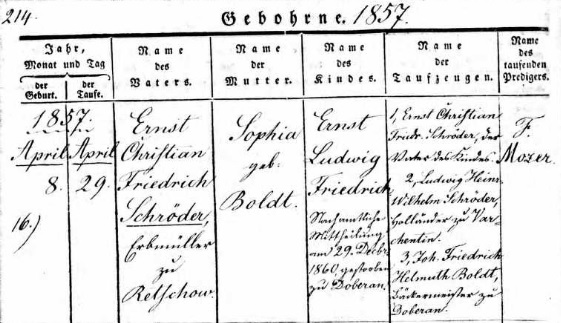 214.
Gebohrne. 1857.
Jahr,
Monat und Tag
der
Geburt.
der
Taufe.
Name
des
Vaters.
Name
der
Mutter.
Name
des
Kindes.
Name
der
Taufzeugen.
Name
des
taufenden
Predigers.
1857.
April
8.
April
29.
16.)
Ernst
Christian
Friedrich
Schröder,
Erbmüller
zu
Retschow.
Sophia
geb.
Boldt.
Ernst
Ludwig
Friedrich
Nach amtliche
Mittheilung
am 29. Decbr.
1860, gestorben
zu Doberan.
1, Ernst Christian
Friedr. Schröder, der
Vater des Kindes.
2, Ludwig Heinr.
Wilhelm Schröder,
Holländer zu Var-
chentin.
3, Joh. Friedrich
Helmuth Boldt,
Bäckermeister zu
Doberan.
F.
Mozer.